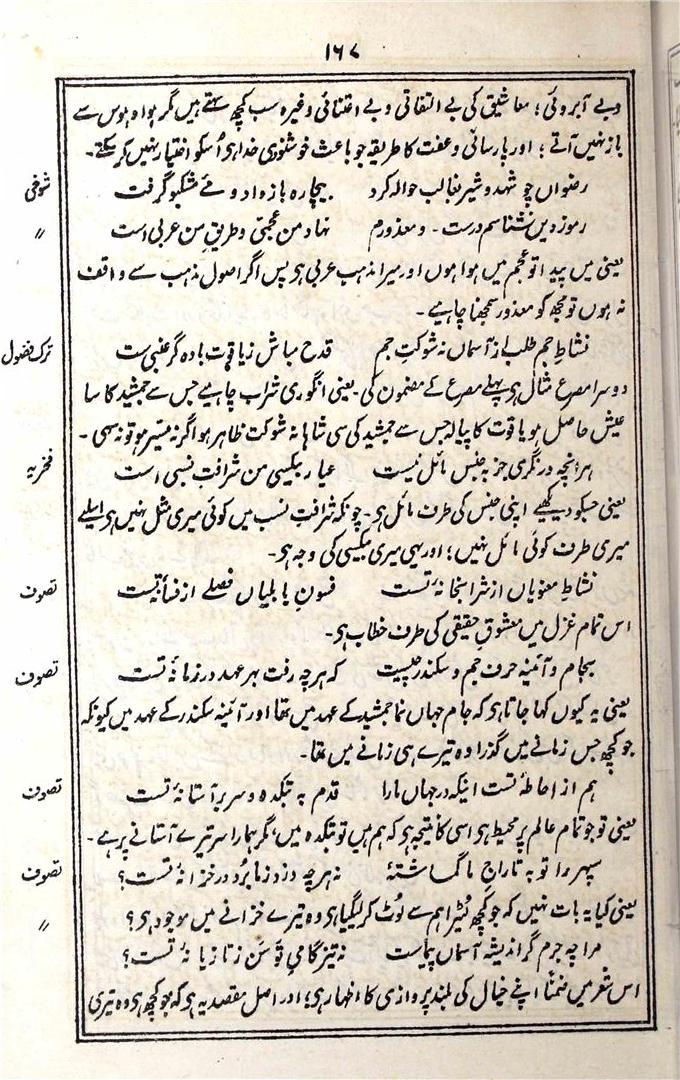 ۱۶۷
وبے آبروئی؛ معاشیق کی بے التفاتی و بے اعتنائی وغیرہ سب کچھ سہتے ہیں مگر ہوا و ہوس سے
باز نہیں آتے؛ اور پارسائی و عفت کا طریقہ جو باعث خوشنودی خدا ہو اُسکو اختیار نہیں کر سکتے۔
رضواں چو شہد و شیر بغالب حوالہ کرد بیچارہ باز داد و مئے مشکبو گرفت
شوخی
رموزِ دیں نشناسم درست۔ و معذورم نہاد من عجمی و طریقِ من عربی است
〃
یعنی میں پیدا تو عجم میں ہوا ہوں اور میرا مذہب عربی ہو پس اگر اصول مذہب سے واقف
نہ ہوں تو مجھ کو معذور سمجھنا چاہیے۔
نشاطِ جم طلب از آسماں نہ شوکتِ جم قدح مباش ز یاقوت بادہ گر عنبی ست
ترک فضول
دوسرا مصرع مثال ہو پہلے مصرع کے مضمون کی۔ یعنی انگوری شراب چاہیے جس سے جمشید کا سا
عیش حاصل ہو یاقوت کا پیالہ جس سے جمشید کی سی شاہانہ شوکت ظاہر ہو اگر نہ میسر ہو تو نہ سہی۔
ہر انچہ در نگری جز بہ جنس مائل نیست عیار بیکسی من شرافتِ نسبی است
فخریہ
یعنی جسکو دیکھیے اپنی جنس کی طرف مائل ہو۔ چونکہ شرافت نسب میں کوئی میری مثل نہیں ہو اسلیے
میری طرف کوئی مائل نہیں؛ اور یہی میری بیکسی کی وجہ ہو۔
نشاطِ معنویاں از شرابخانۂ تست فسونِ بابلیاں فصلے از فسانۂ تست
تصوف
اس تمام غزل میں معشوقِ حقیقی کی طرف خطاب ہو۔
بجام و آئینہ حرف جم و سکندر چیست کہ ہرچہ رفت بہر عہد در زمانۂ تست
تصوف
یعنی یہ کیوں کہا جاتا ہو کہ جام جہاں نما جمشید کے عہد میں تھا اور آئینہ سکندر کے عہد میں کیونکہ
جو کچھ جس زمانے میں گذرا وہ تیرے ہی زمانے میں تھا۔
ہم از احاطۂ تست اینکہ در جہاں مارا قدم بہ بتکدہ و سر بر آستانۂ تست
تصوف
یعنی تو جو تمام عالم پر محیط ہو اسی کا نتیجہ ہو کہ ہم ہیں تو بتکدہ میں، مگر ہمارا سر تیرے آستانے پر ہے۔
سپہر را تو بہ تاراجِ ما گماشتۂ نہ ہرچہ دزد ز ما بُرد در خزانۂ تست؟
تصوف
یعنی کیا یہ بات نہیں کہ جو کچھ لٹیرا ہم سے لُوٹ کر لیگیا ہو وہ تیرے خزانے میں موجود ہو؟
〃
مرا چہ جرم گر اندیشہ آسماں پیماست نہ تیز گامیِ توسن ز تازیانۂ تست؟
اس شعر میں ضمناً اپنے خیال کی بلند پروازی کا اظہار ہو؛ اور اصل مقصد یہ ہو کہ جو کچھ ہو وہ تیری